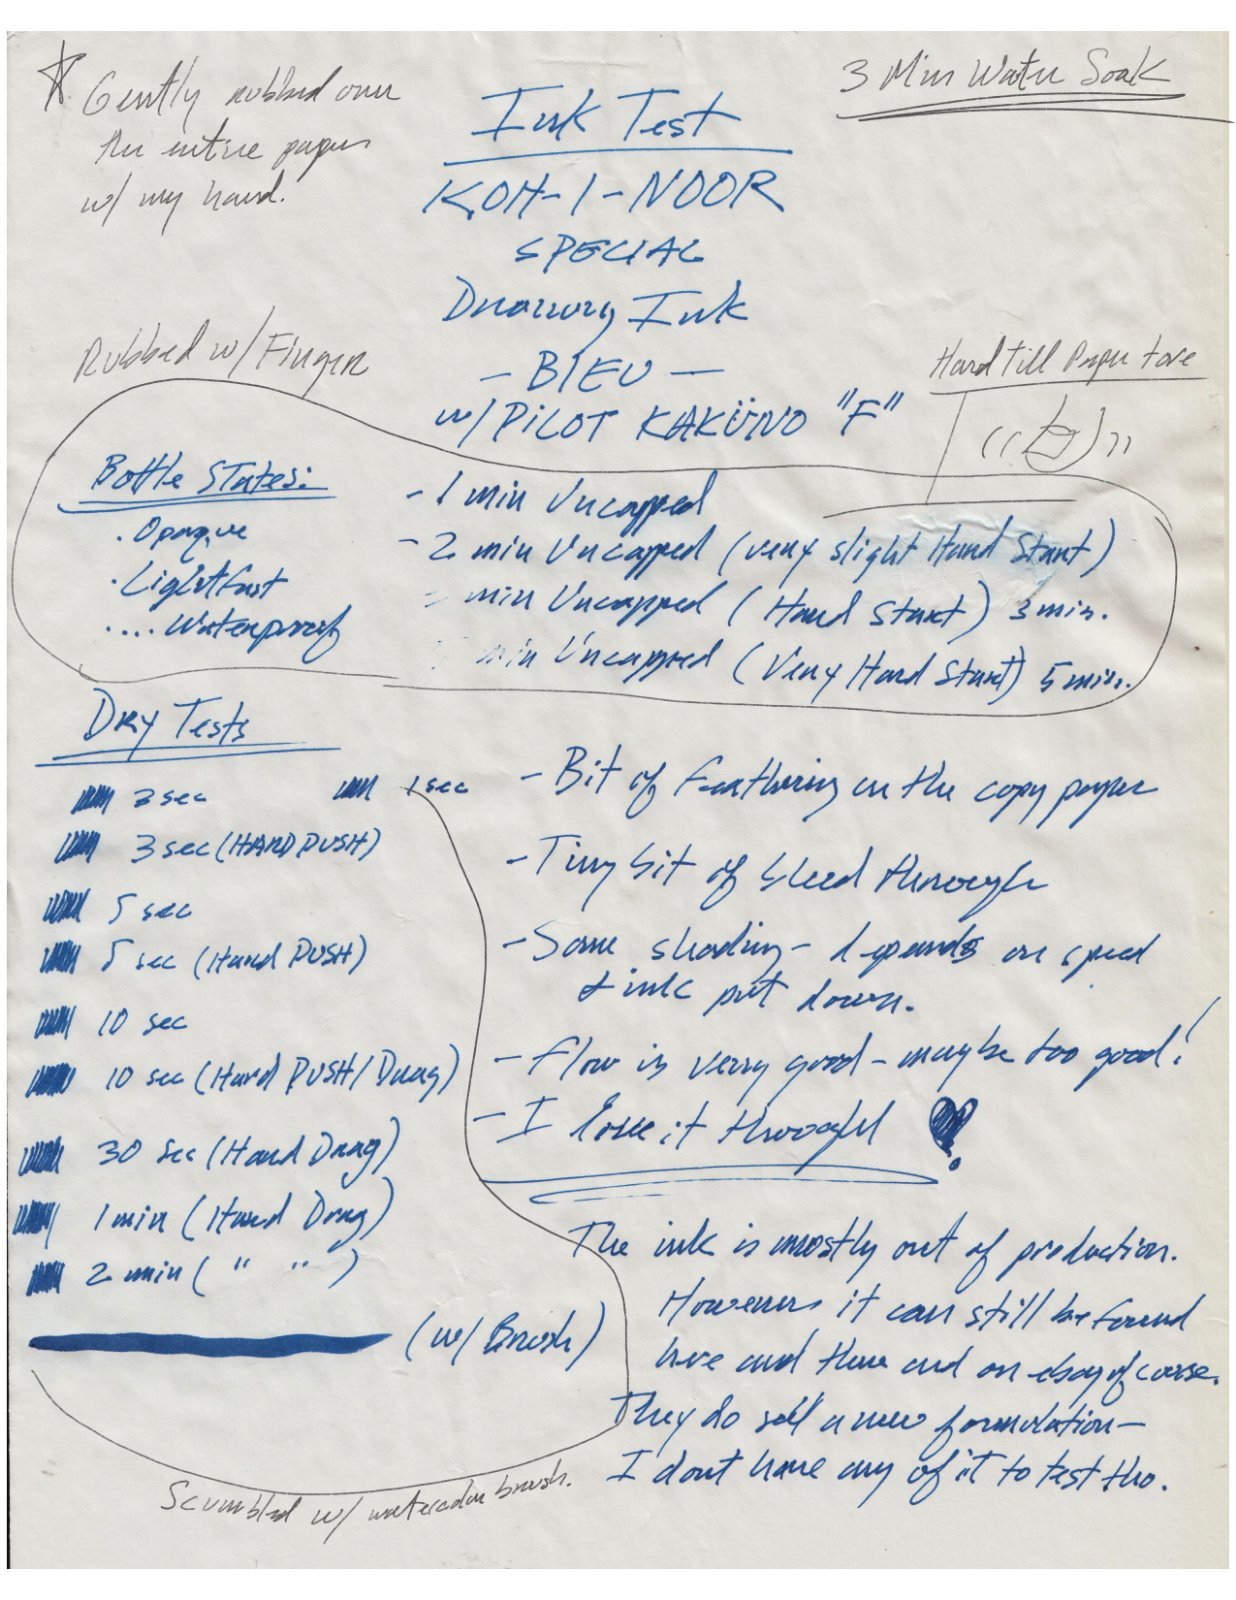 ☆ Gently rubbed over
the entire paper
w/ my hand.
3 Min Water Soak
Ink Test
KOH-I-NOOR
SPECIAL
Drawing Ink
- BLEU -
w/ PILOT KAKÜNO "F"
Rubbed w/ Finger
Hard till paper tore
Bottle States:
. Opaque
. Lightfast
.... Waterproof
- 1 min Uncapped
- 2 min Uncapped (very slight Hard Start)
- min Uncapped (Hard Start) 3 min.
min Uncapped (Very Hard Start) 5 min.
Dry Tests
2 sec
1 sec
3 sec (HARD PUSH)
5 sec
5 sec (Hard PUSH)
10 sec
10 sec (Hard PUSH/Drag)
30 sec (Hard Drag)
1 min (Hard Drag)
2 min ( " " )
(w/ Brush)
- Bit of Feathering on the copy paper
- Tiny bit of bleed through
- Some shading - depends on speed
& ink put down.
- Flow is very good - maybe too good!
- I love it though ♥
The ink is mostly out of production.
However it can still be found
here and there and on ebay of corse.
They do sell a new formulation -
I dont have any of it to test tho.
Scumbled w/ watercolor brush.